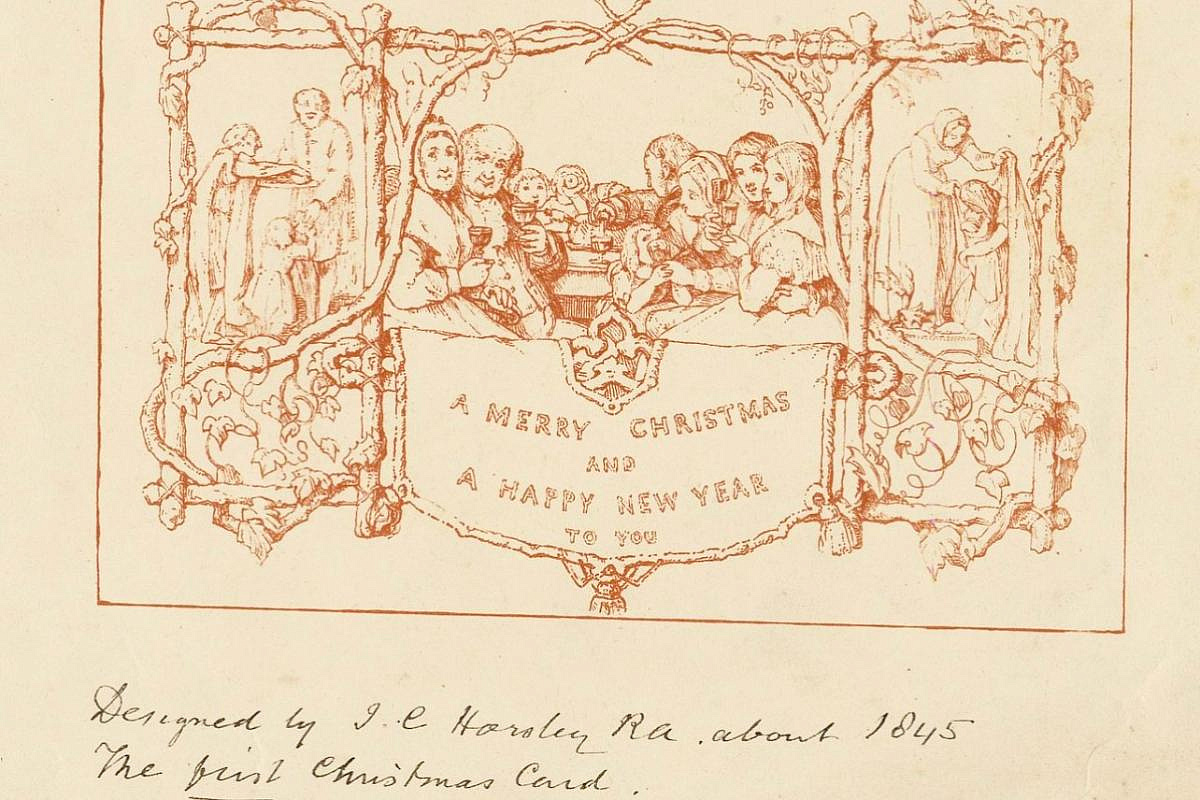 A MERRY CHRISTMAS
AND
A HAPPY NEW YEAR
TO YOU
Designed by J. C Horsley RA. about 1845
The first Christmas Card.